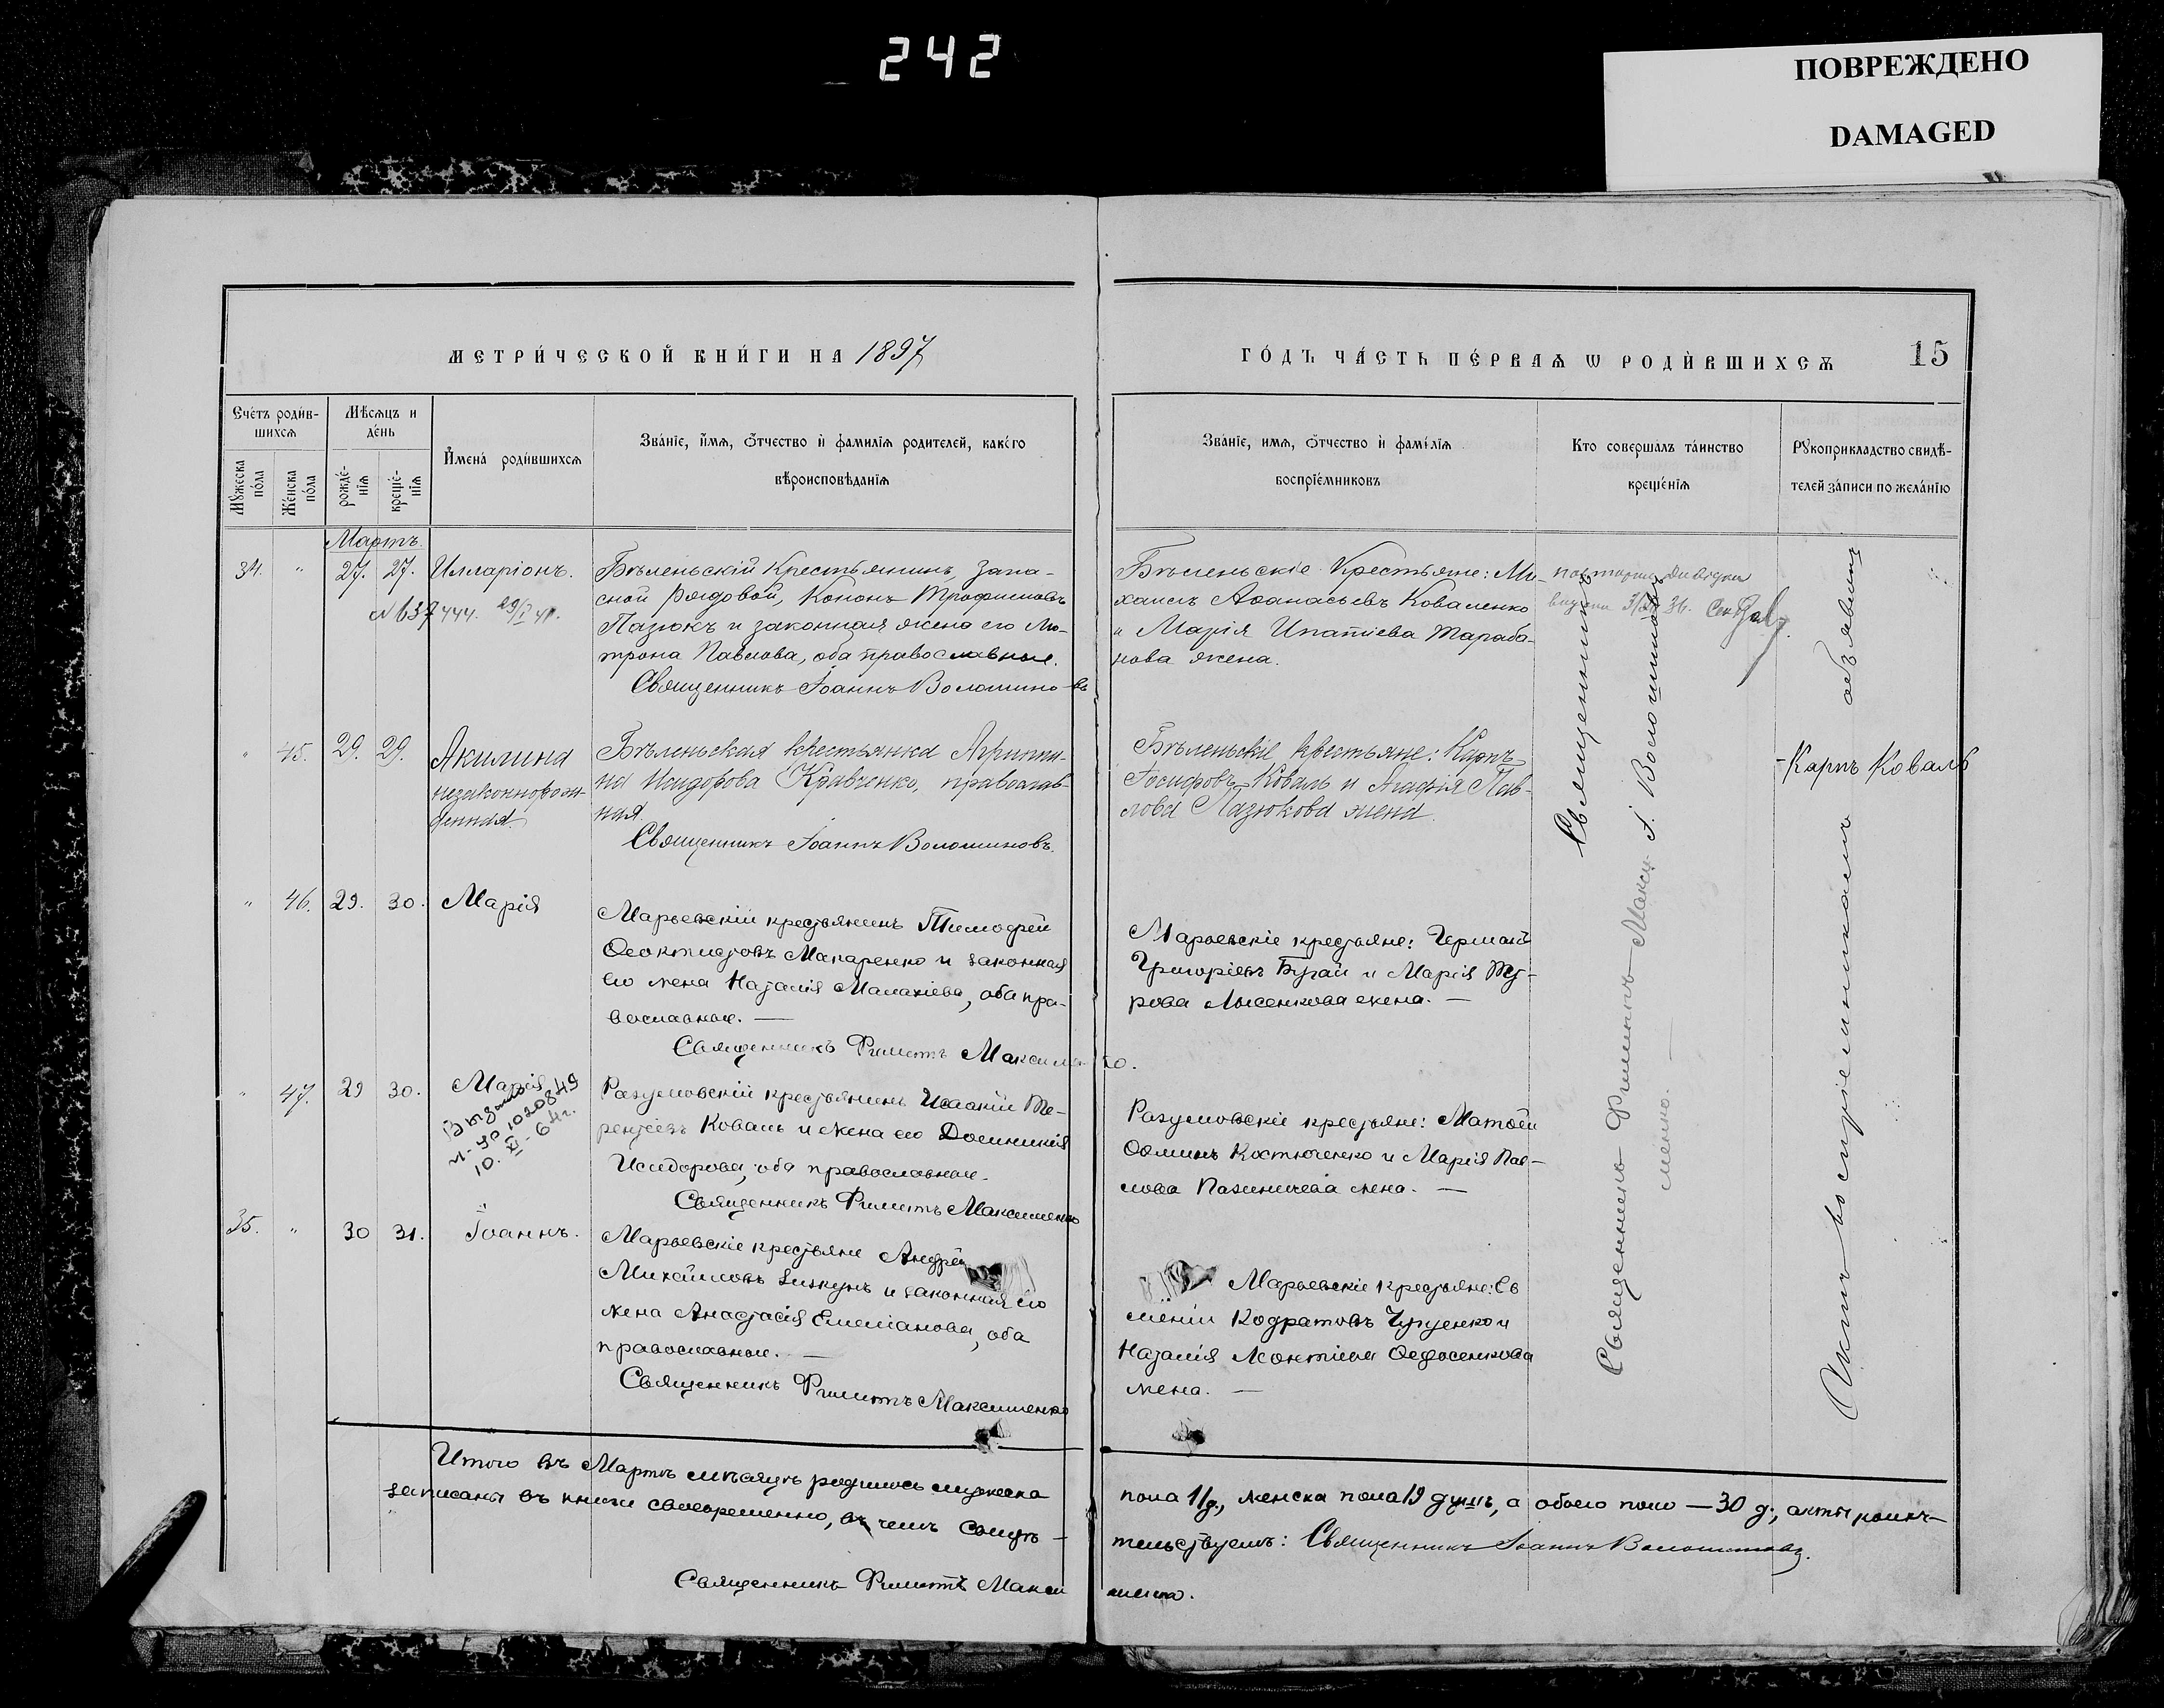 242
ПОВРЕЖДЕНО
DAMAGED
МЕТРИ́ЧЕСКОЙ КНИ́ГИ НА 1897
ГО́ДЪ ЧА́СТЬ ПЕ́РВАѦ Ѡ РОДИ́ВШИХСѦ
15
Счетъ роди́в-
шихсѧ
Мѣсѧцъ и
де́нь
Мꙋжеска
по́ла
Же́нска
по́ла
рожде́-
нїѧ
креще́-
нїѧ
И҆мена̀ роди́вшихсѧ
Зва́нїе, и҆́мѧ, ѻ҆́тчество и҆ фамилїѧ родителей, како́го
вѣроисповѣданїѧ
Зва́нїе, имѧ, ѻ҆́тчество и҆ фамилїѧ
воспрїе́мниковъ
Кто соверша́лъ та́инство
креще́нїѧ
Рꙋкоприкладство свидѣ́-
телей за́писи по жела́нїю
Мартъ.
34. " 27. 27. Илларіонъ.
№ 637444. 29/I 41.
Бѣленьскій Крестьянинъ, запа-
сной рядовой, Кононъ Трофимовъ
Пазюкъ и законная жена его Мо-
трона Павлова, оба православные.
Священникъ Іоаннъ Волошиновъ
Бѣленьскіе Крестьяне: Ми-
хаилъ Аѳанасьевъ Коваленко
и Марія Ипатіева Тараба-
нова жена.
" 45. 29. 29. Акилина
незаконнорож-
денная.
Бѣленьская крестьянка Агриппи-
на Исидорова Кравченко, православ-
ная.
Священникъ Іоаннъ Волошиновъ.
Бѣленьскіе крестьяне: Карпъ
Іосифовъ Коваль и Агафія Пав-
лова Пазюкова жена.
-Карпъ Коваль
" 46. 29. 30. Марія
Марьевскій крестьянинъ Тимофей
Ѳеоктистовъ Макаренко и законная
его жена Наталія Малахіева, оба пра-
вославные. —
Священникъ Филиппъ Максименко.
Марьевскіе крестьяне:
Григоріевъ Бугай и Марія
рова Лысенкова жена. —
" 47. 29 30. Марія
Выдано
10. XI - 64 г.
Разумовскій крестьянинъ Исаакій Те-
рентіевъ Коваль и жена его Домникія
Исидорова, оба православные.
Священникъ Филиппъ Максименко
Разумовскіе крестьяне: Матѳей
Ѳоминъ Костюченко и Марія Пав-
лова жена. —
35. " 30 31. Іоаннъ.
Марьевскіе крестьяне Андрей
Михайловъ и законная его
жена Анастасія Емеліанова, оба
православные. —
Священникъ Филиппъ Максименко
Марьевскіе крестьяне: Ев
меній Кодратовъ и
Наталія Леонтіева Ѳедосенкова
жена. —
Священникъ І. Волошиновъ
Священникъ Филиппъ Макси-
менко. —
Актъ воспріемникамъ объявленъ
Итого въ Мартѣ мѣсяцѣ родилось мужеска
пола 11 д., женска пола 19 душъ, а обоего пола — 30 д.; акты
записаны въ книги своевременно, въ чемъ свидѣ-
тельствуемъ: Священникъ Іоаннъ Волошиновъ.
Священникъ Филиппъ Макси
менко.